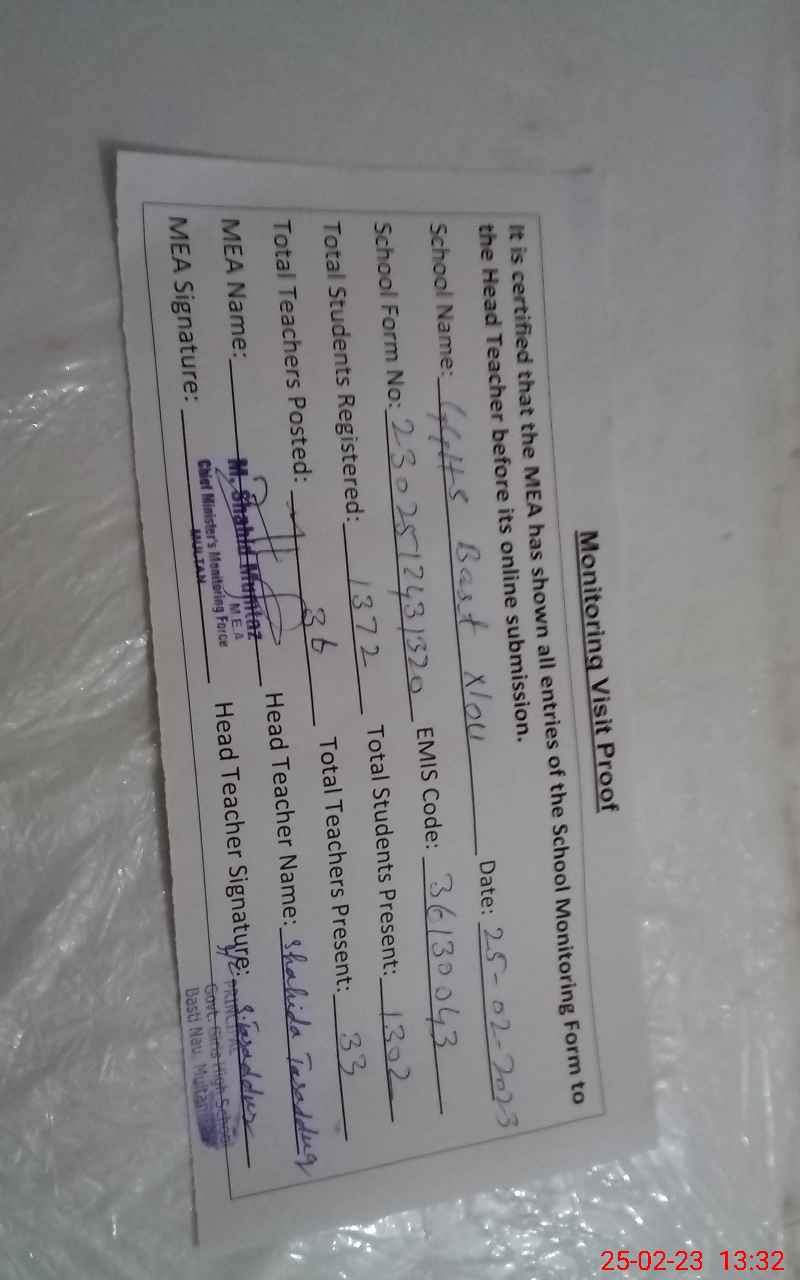 Monitoring Visit Proof
It is certified that the MEA has shown all entries of the School Monitoring Form to
the Head Teacher before its online submission.
School Name: GGHS Basti Nau Date: 25-02-2023
School Form No: 2302512431320 EMIS Code: 36130043
Total Students Registered: 1372 Total Students Present: 1302
Total Teachers Posted: 36 Total Teachers Present: 33
MEA Name: M. Shahid Mumtaz Head Teacher Name: Shahida Tasadduq
M E A
Chief Minister's Monitoring Force
MULTAN
MEA Signature: Head Teacher Signature: S.Tasadduq
PRINCIPAL
Govt. Girls High School
Basti Nau, Multan
25-02-23 13:32